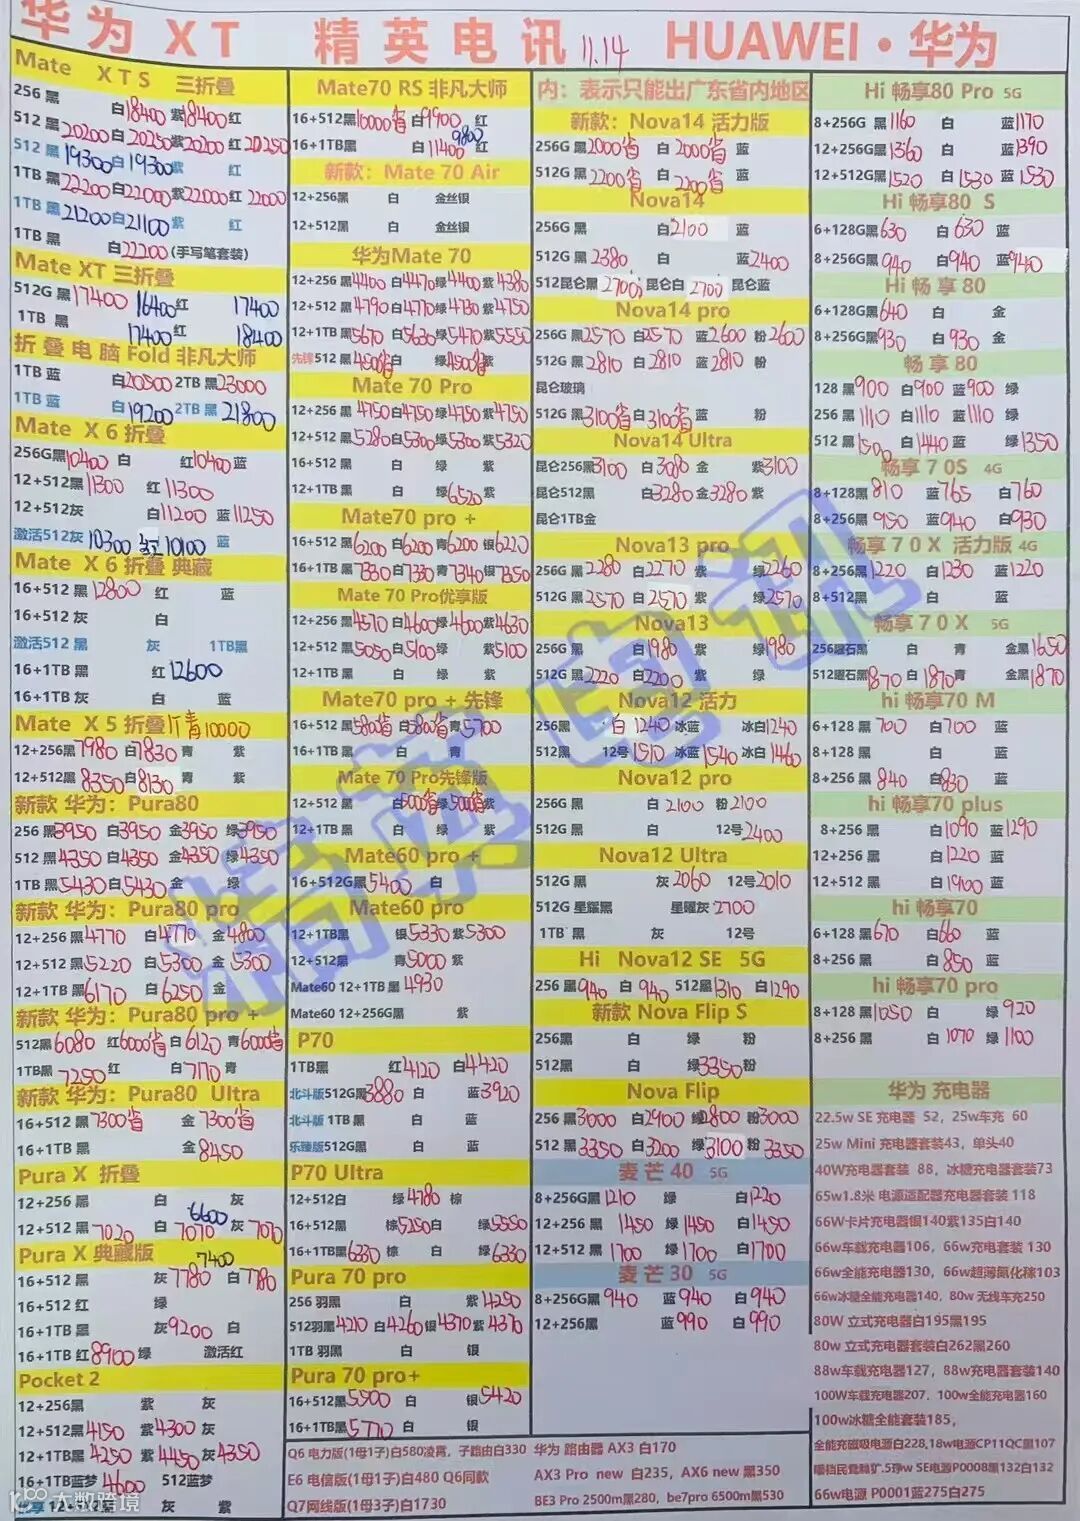 华为 XT 精英电讯 11.14 HUAWEI·华为
Mate XTS 三折叠
256 黑 白18400 紫18400 红
512 黑20200 白20250 紫20200 红20250
512 黑19300 白19300 紫 红
1TB 黑22200 白22000 紫22000 红22000
1TB 黑21200 白21100 紫 红
1TB 黑 白22200 (手写笔套装)
Mate XT 三折叠
512G 黑17400 16400 红 17400
1TB 黑 17400 红 18400
折叠电脑 Fold 非凡大师
1TB 蓝 白20500 2TB 黑23000
1TB 蓝 白19200 2TB 黑21800
Mate X 6 折叠
256G黑10400 白 红10400 蓝
12+512黑11300 红11300
12+512灰 白11200 蓝11250
激活512灰 10300 红10100 蓝
Mate X 6 折叠 典藏
16+512 黑12800 红 蓝
16+512 灰 白
激活512 黑 灰 1TB黑
16+1TB 黑 红12600
16+1TB 灰 白 蓝
Mate X 5 折叠 青10000
12+256黑7980 白7830 青 紫
12+512黑8350 白8130 青 紫
新款 华为：Pura80
256 黑3950 白3950 金3950 绿3950
512 黑4350 白4350 金4350 绿4350
1TB 黑5430 白5430 金 绿
新款 华为：Pura80 pro
12+256 黑4770 白4770 金4800
12+512 黑5220 白5300 金5300
12+1TB 黑6170 白6250 金
新款 华为：Pura80 pro +
512黑6080 红6000省 白6120 青6000省
1TB黑7250 红 白7170 青
新款 华为：Pura80 Ultra
16+512 黑7300省 金7300省
16+1TB 黑 金8450
Pura X 折叠
12+256 黑 白 灰
6600
12+512 黑7020 白7070 灰7070
Pura X 典藏版 7400
16+512 黑 灰7780 白7780
16+512 红 绿
16+1TB 黑 灰9200 白
16+1TB 红8900 绿 激活红
Pocket 2
12+256黑 紫 灰
12+512黑4150 紫4300 灰
12+1TB黑4250 紫4450 灰4350
16+1TB蓝梦4600 512蓝梦
12+512黑 灰 紫
Mate70 RS 非凡大师
16+512黑10000省 白9900 红
9800
16+1TB黑 白11400 红
新款：Mate 70 Air
12+256黑 白 金丝银
12+512黑 白 金丝银
华为Mate 70
12+256黑4400 白4470 绿4400 紫4380
12+512 黑4790 白4770 绿4730 紫4750
12+1TB黑5670 白5630 绿5470 紫5550
先锋512 黑4500省 白 绿4500省 紫
Mate 70 Pro
12+256 黑4750 白4750 绿4750 紫4750
12+512 黑5280 白5300 绿5300 紫5320
16+512 黑 白 绿 紫
12+1TB 黑 白 绿6520 紫
Mate70 pro +
16+512 黑6200 白6200 青6200 银6220
16+1TB 黑7330 白7330 青7340 银7350
Mate 70 Pro优享版
12+256 黑4570 白4600 绿4600 紫4630
12+512 黑5050 白5100 绿 紫5100
12+1TB黑 白 绿 紫
Mate70 pro + 先锋
16+512 黑5800省 白5800省 青5700
16+1TB 黑 白 青
Mate 70 Pro先锋版
12+512 黑 白5000省 绿5000省 紫
12+1TB 黑 白 绿 紫
Mate60 pro +
16+512G黑5400 白
Mate60 pro
12+1TB黑 银5330 紫5300
12+512黑 青5000 紫
Mate60 12+1TB 黑4930
Mate60 12+256G黑 紫
P70
1TB黑 红4120 白4420
北斗版512G黑3880 白 蓝3920
北斗版 1TB 黑 白 蓝
乐臻版512G黑 白 蓝
P70 Ultra
12+512白 绿4780 棕
16+512黑 棕5250 白 绿5550
16+1TB黑6330 棕 白 绿6330
Pura 70 pro
256 羽黑 白 紫4250
512羽黑4210 白4260 银4370 紫4370
1TB 羽黑 白 银
Pura 70 pro+
16+512黑5500 白 银5420
16+1TB黑5770 白 银
内：表示只能出广东省内地区
新款：Nova14 活力版
256G 黑2000省 白2000省 蓝
512G 黑2200省 白2200省 蓝
Nova14
256G 黑 白2100 蓝
512G 黑2380 白 蓝2400
512昆仑黑2700 昆仑白2700 昆仑蓝
Nova14 pro
256G 黑2570 白2570 蓝2600 粉2600
512G 黑2810 白2810 蓝2810 粉
昆仑玻璃
512G 黑3100省 白3100省 蓝 粉
Nova14 Ultra
昆仑256黑3100 白3080 金 紫3100
昆仑512黑 白3280 金3280 紫
昆仑1TB金
Nova13 pro
256G 黑2280 白2270 紫 绿2260
512G 黑2570 白2570 紫 绿2570
Nova13
256G 黑 白1980 紫 绿1980
512G 黑2220 白2200 紫 绿
Nova12 活力
256黑 白1240 冰蓝 冰白1240
512黑 12号1510 冰蓝1540 冰白1460
Nova12 pro
256G 黑 白2100 粉2100
512G 黑 白 12号2400
Nova12 Ultra
512G 黑 灰2060 12号2010
512G 星耀黑 星耀灰2700
1TB 黑 灰 12号
Hi Nova12 SE 5G
256 黑940 白940 512黑1310 白1290
新款 Nova Flip S
256黑 白 绿 粉
512黑 白 绿3350 粉
Nova Flip
256 黑3000 白2900 绿2800 粉3000
512 黑3350 白3200 绿3100 粉3350
麦芒 40 5G
8+256G黑1210 绿 白1220
12+256 黑1450 绿1450 白1450
12+512 黑1700 绿1700 白1700
麦芒 30 5G
8+256G黑940 蓝940 白940
12+256黑 蓝990 白990
Hi 畅享80 Pro 5G
8+256G 黑1160 白 蓝1170
12+256G 黑1360 白 蓝1390
12+512G黑1520 白1530 蓝1530
Hi 畅享80 S
6+128G黑630 白630 蓝
8+256G 黑940 白940 蓝940
Hi 畅享 80
6+128G黑640 白 金
8+256G黑930 白930 金
畅享 80
128 黑900 白900 蓝900 绿
256 黑1110 白1110 蓝1110 绿
512 黑1500 白1440 蓝 绿1350
畅享 70S 4G
8+128黑810 蓝765 白760
8+256黑950 蓝940 白930
畅享70X 活力版 4G
8+256黑1220 白1230 蓝1220
8+512黑 白 蓝
畅享70X 5G
256曜石黑 白 青 金黑1650
512曜石黑1870 白1870 青 金黑1870
hi 畅享70 M
6+128 黑700 白700 蓝
8+128 黑 白 蓝
8+256 黑840 白830 蓝
hi 畅享70 plus
8+256 黑 白1090 蓝1290
12+256 黑 白1220 蓝
12+512 黑 白1400 蓝
hi 畅享70
6+128 黑670 白660 蓝
8+256 黑 白850 蓝
hi 畅享70 pro
8+128 黑1050 白 绿920
8+256 黑 白1070 绿1100
华为 充电器
22.5w SE 充电器 52，25w车充 60
25w Mini 充电器套装43，单头40
40W充电器套装 88，冰糖充电器套装73
65w1.8米 电源适配器充电器套装 118
66W卡片充电器银140紫135白140
66w车载充电器106，66w充电套装 130
66w全能充电器130，66w超薄氮化镓103
66w冰糖全能充电器140，80w 无线车充250
80W 立式充电器白195黑195
80w 立式充电器套白262黑260
88w车载充电器127，88w充电器套装140
100W车载充电器207，100w全能充电器160
100w冰糖全能套装185，
全能充磁吸电源白228,18w电源CP11QC黑107
SE电源P0008黑132白132
66w电源 P0001蓝275白275
Q6 电力版(1母1子)白580凌霄，子路由白330 华为 路由器 AX3 白170
E6 电信版(1母1子)白480 Q6同款 AX3 Pro new 白235，AX6 new 黑350
Q7网线版(1母3子)白1730 BE3 Pro 2500m黑280，be7pro 6500m黑530
精英电讯
大数跨境